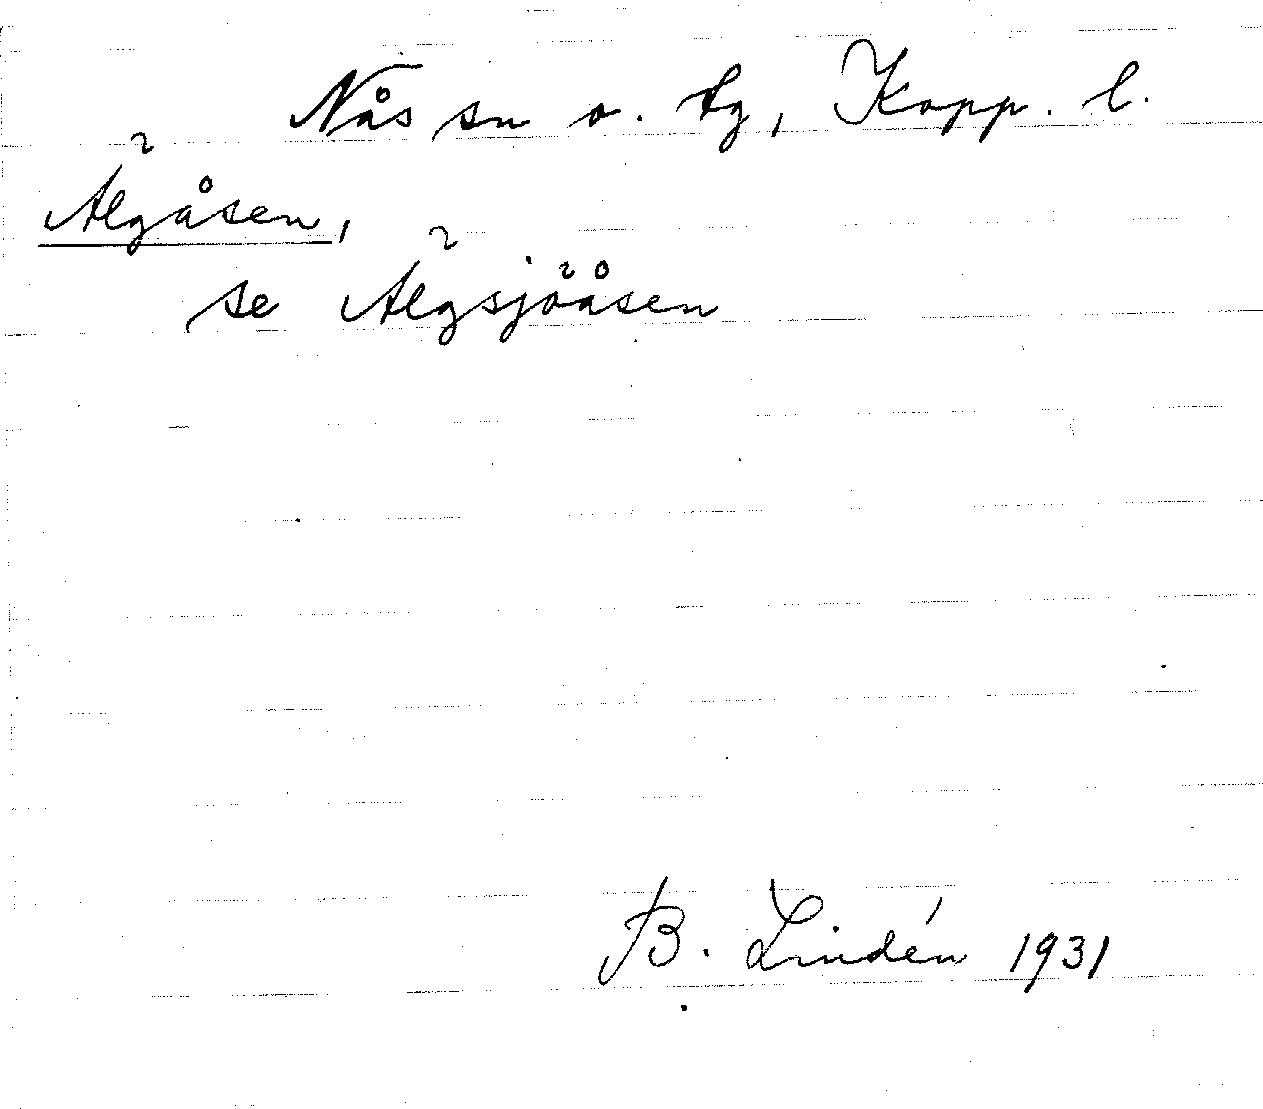 Nås sn o. tg, Kopp. l.
Älgåsen,
se Älgsjöåsen
B. Lindén 1931